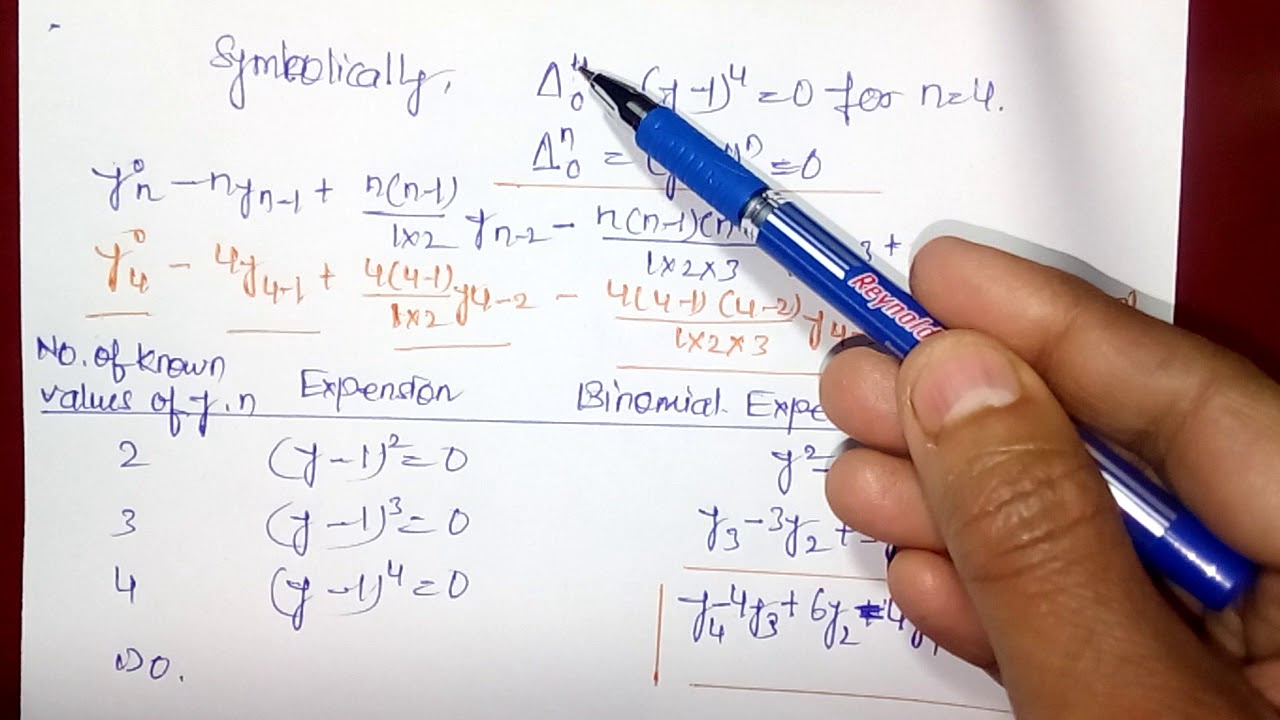 Symbolically, Δ⁴₀ (y-1)⁴=0 for n=4.
Δⁿ₀ = =0
y⁰n - nyn-1 + n(n-1)/1×2 yn-2 - n(n-1)(n /1×2×3 3 +
y⁰4 - 4y4-1 + 4(4-1)/1×2 y4-2 - 4(4-1)(4-2)/1×2×3 y4-
Reynold
No. of known
values of y.n Expension Binomial Expe
2 (y-1)²=0 y²-
3 (y-1)³=0 y3-3y2+
4 (y-1)⁴=0 y4-4y3+6y2-4y1